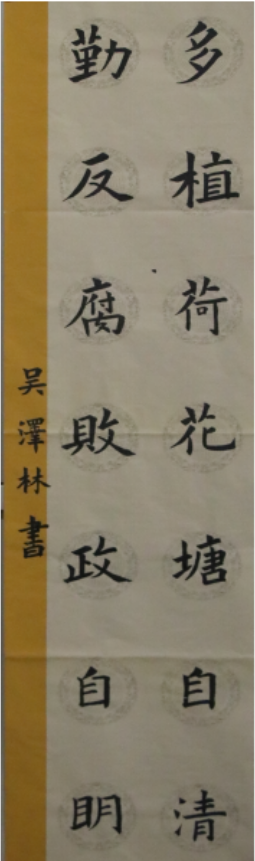 多植荷花塘自清
勤反腐敗政自明
吴澤林書